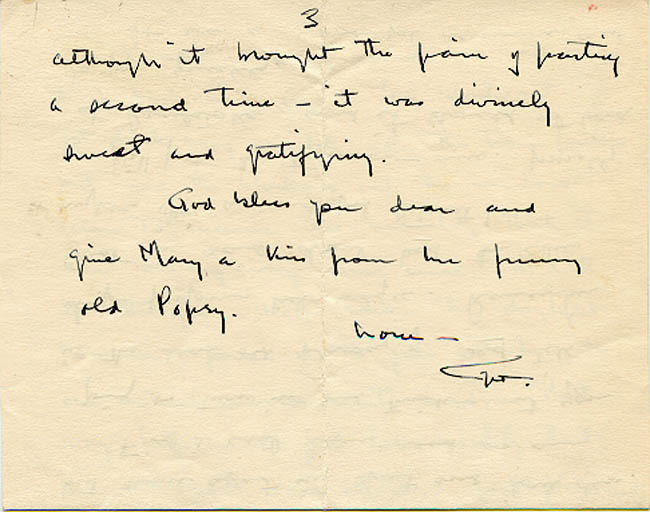 3
although it brought the pain of parting
a second time – it was divinely
sweet and gratifying.
God bless you dear and
give Mary a kiss from her funny
old Popsy.